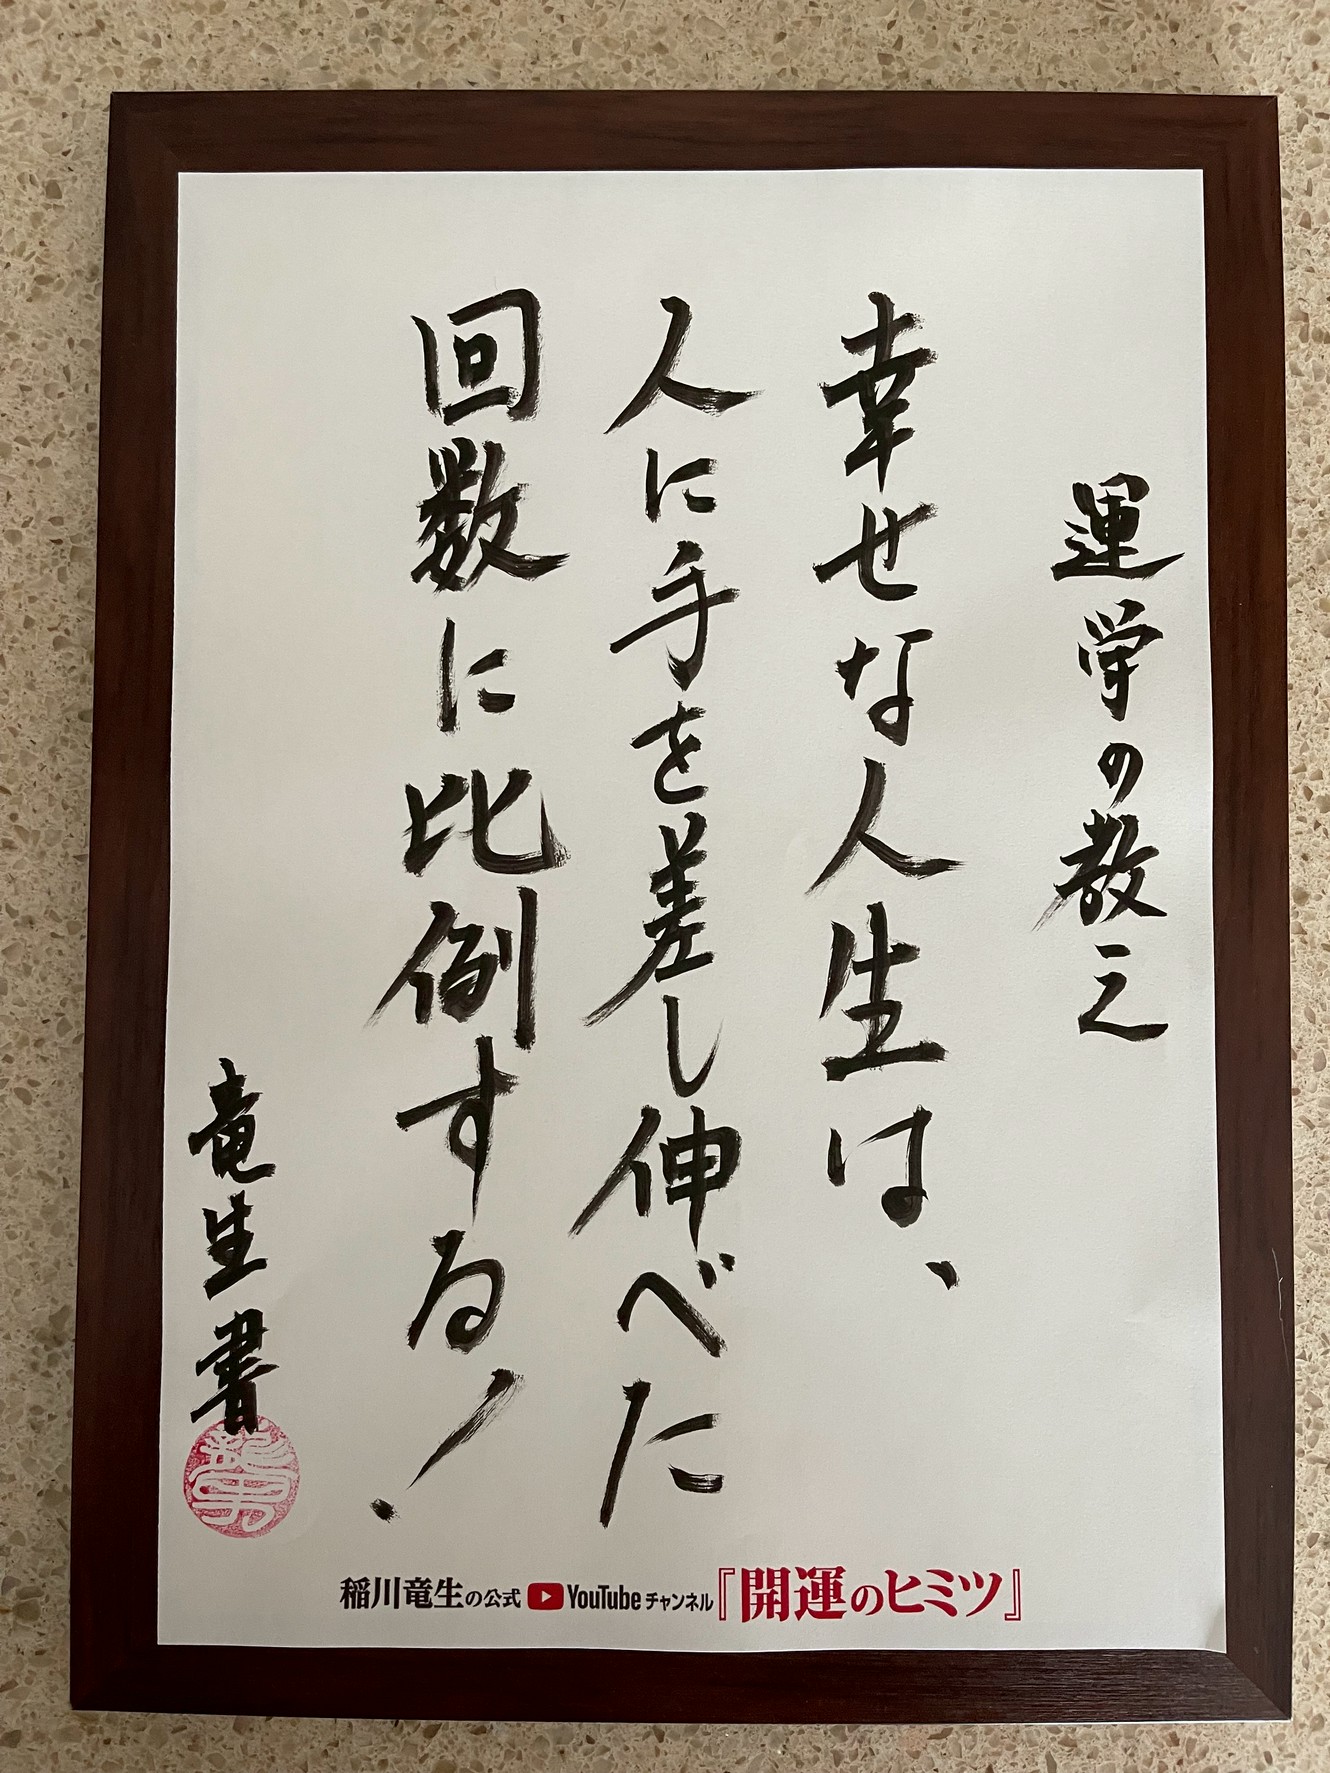 運学の教え
幸せな人生は、
人に手を差し伸べた
回数に比例する!
竜生書
稲川竜生の公式 YouTube チャンネル『開運のヒミツ』